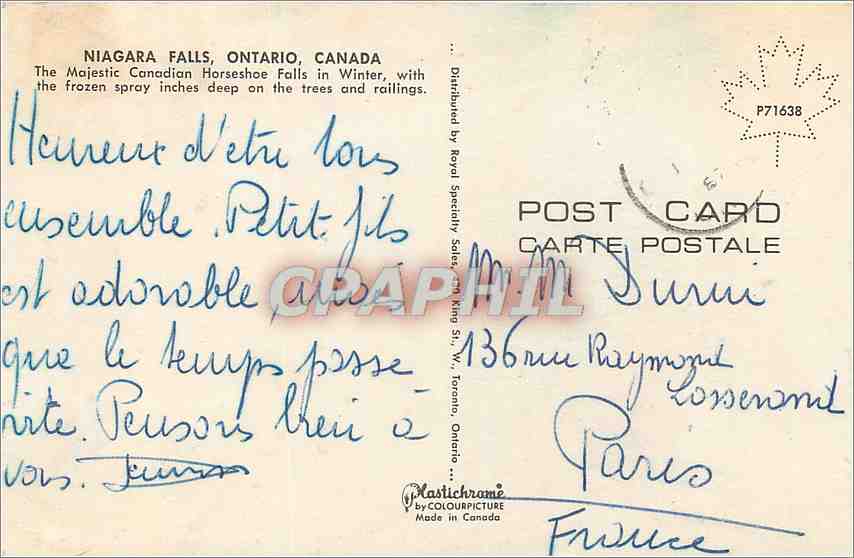 NIAGARA FALLS, ONTARIO, CANADA
The Majestic Canadian Horseshoe Falls in Winter, with
the frozen spray inches deep on the trees and railings.
Heureux d'etre tous
ensemble. Petit-fils
est adorable, mais
que le temps passe
vite. Pensons bien à
vous.
Distributed by Royal Specialty Sales, 430 King St., W., Toronto, Ontario
Plastichrome
by COLOURPICTURE
Made in Canada
P71638
POST CARD
CARTE POSTALE
M. M
136 rue Raymond
Losserand
Paris
France
CPAPHIL